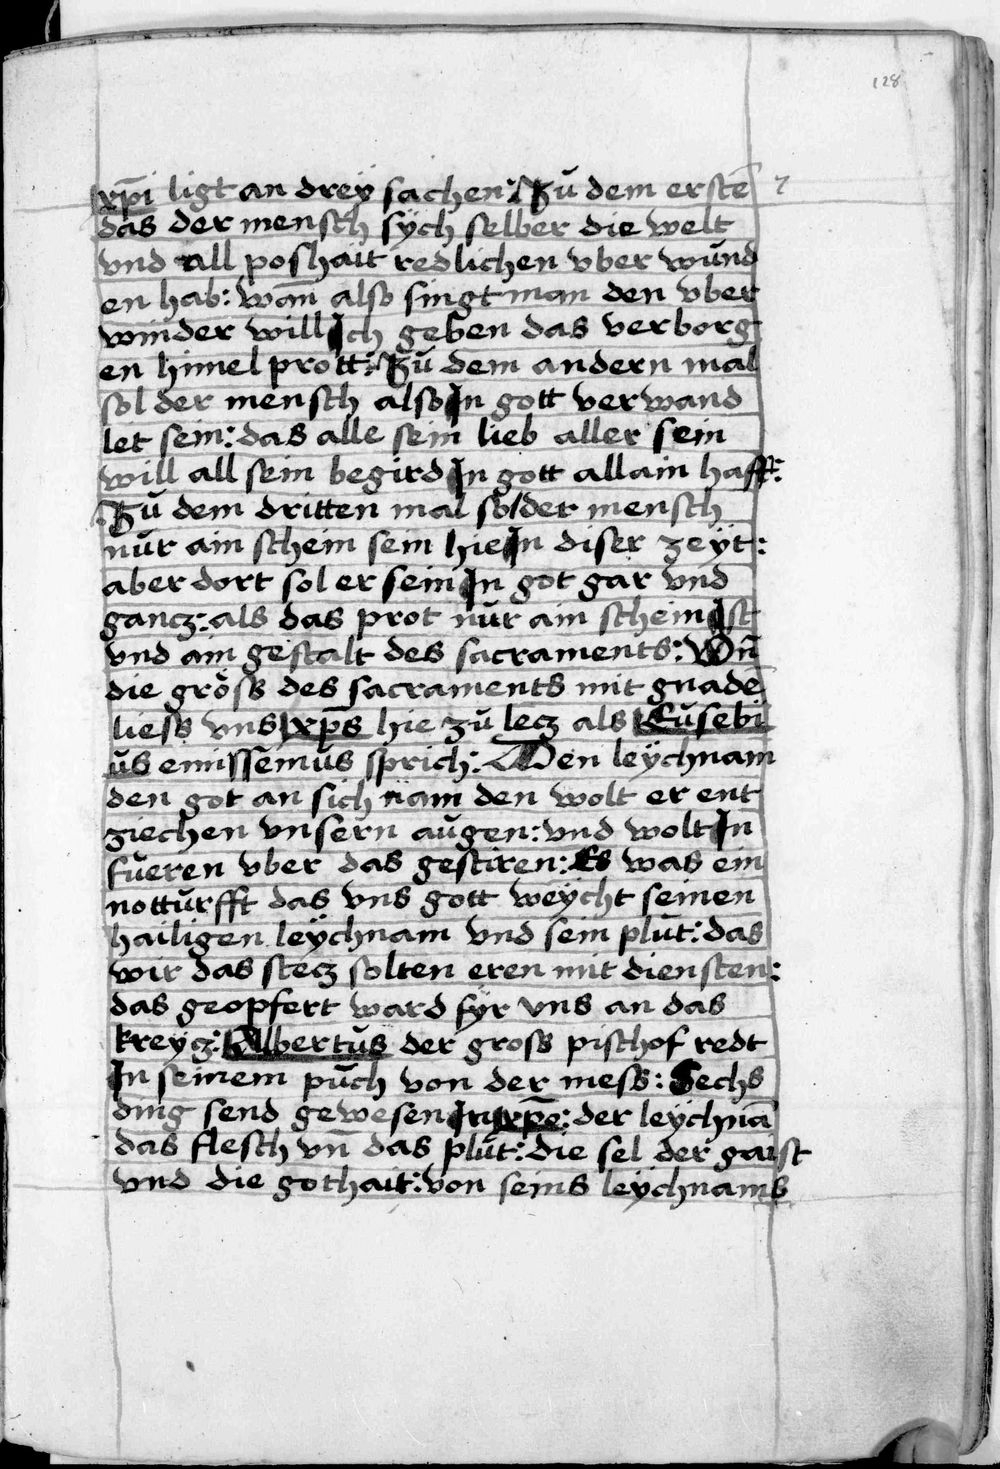 128
xp̄i ligt an dreÿ sachen: Zu dem erstē 7
das der mensch sÿch selber die welt
vnd all poshait redlichen vber wund
en hab: wan̄ also singt man den vber
winder will Ich geben das verborg
en himel prott: Zu dem andern mal
sol der mensch also In gott verwand
let sein: das alle sein lieb aller sein
will all sein begird In gott allain hafft:
Zu dem dritten mal sol der mensch
nur ain schein sein hie In diser zeÿt:
aber dort sol er sein In got gar vnd
gancz: als das prot nur ain schein Ist
vnd ain gestalt des sacraments: Wn̄
die gröss des sacraments mit gnadē
liess vns xp̄s hie zu lecz als Eusebi
us emissemus sprich: Den leÿchnam
den got an sich nam den wolt er ent
ziechen vnsern augen: vnd wolt In
fueren vber das gestiren: Es was ein
notturfft das vns gott weÿcht seinen
hailigen leÿchnam vnd sein plut: das
wir das stecz solten eren mit diensten:
das geopfert ward fÿr vns an das
kreycz: Albertus der gross pischof redt
In seinem puch von der mess: Sechs
ding send gewesen In xp̄o: der leÿchnā
das flesch vn̄ das plut: die sel der gaist
vnd die gothait: von seins leÿchnams